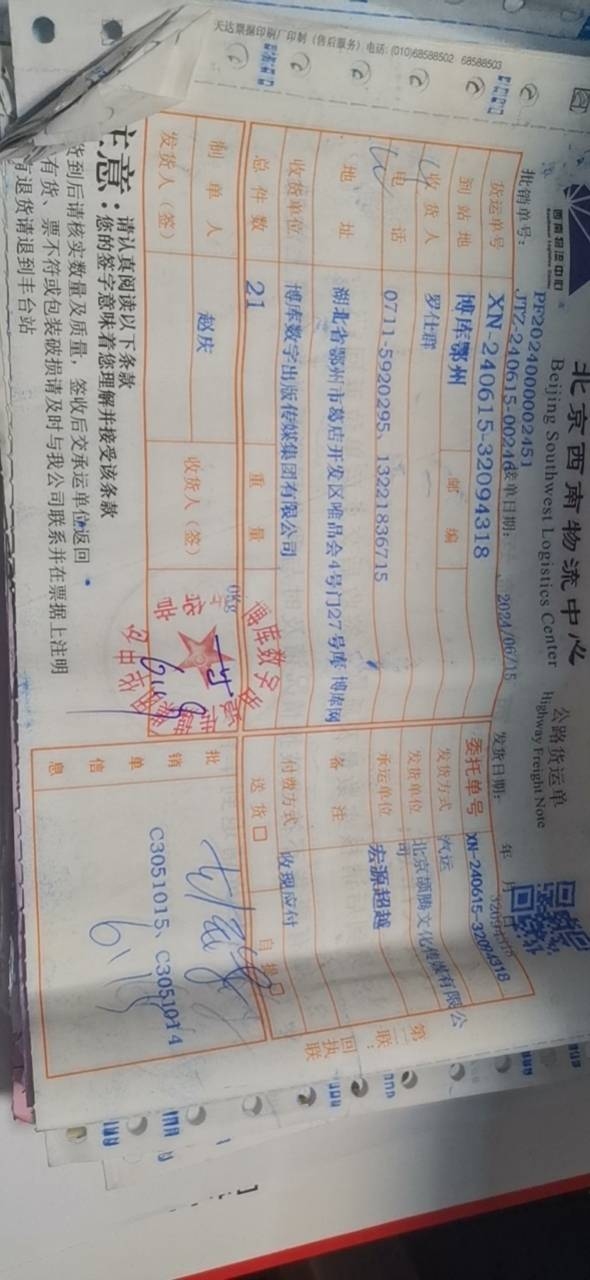 天达票据印刷厂印制（售后服务）电话：(010)68588502 68588503
西南物流中心
北京西南物流中心
Beijing Southwest Logistics Center
公路货运单
Highway Freight Note
PF2024000002451
批销单号：JTZ-240615-00246 接单日期：2024/06/15 发货日期： 年 月 日
32094318
货运单号 XN-240615-32094318 委托单号 XN-240615-32094318
到站地 博库鄂州 邮编 发货方式 汽运
收货人 罗仕群 发货单位 北京颉腾文化传媒有限公司
电话 0711-5920295、13221836715 承运单位 宏源超越
地址 湖北省鄂州市葛店开发区唯品会4号门27号库 博库网 备注
收货单位 博库数字出版传媒集团有限公司 付费方式 收现应付
总件数 21 重量 0Kg 送货 自提
制单人 赵庆 收货人（签）
发货人（签）
批销单信息 C3051015、C3051014
第二联：回执联
注意：请认真阅读以下条款
您的签字意味着您理解并接受该条款
货到后请核实数量及质量，签收后交承运单位返回
有货、票不符或包装破损请及时与我公司联系并在票据上注明
有退货请退到丰台站
博库数字